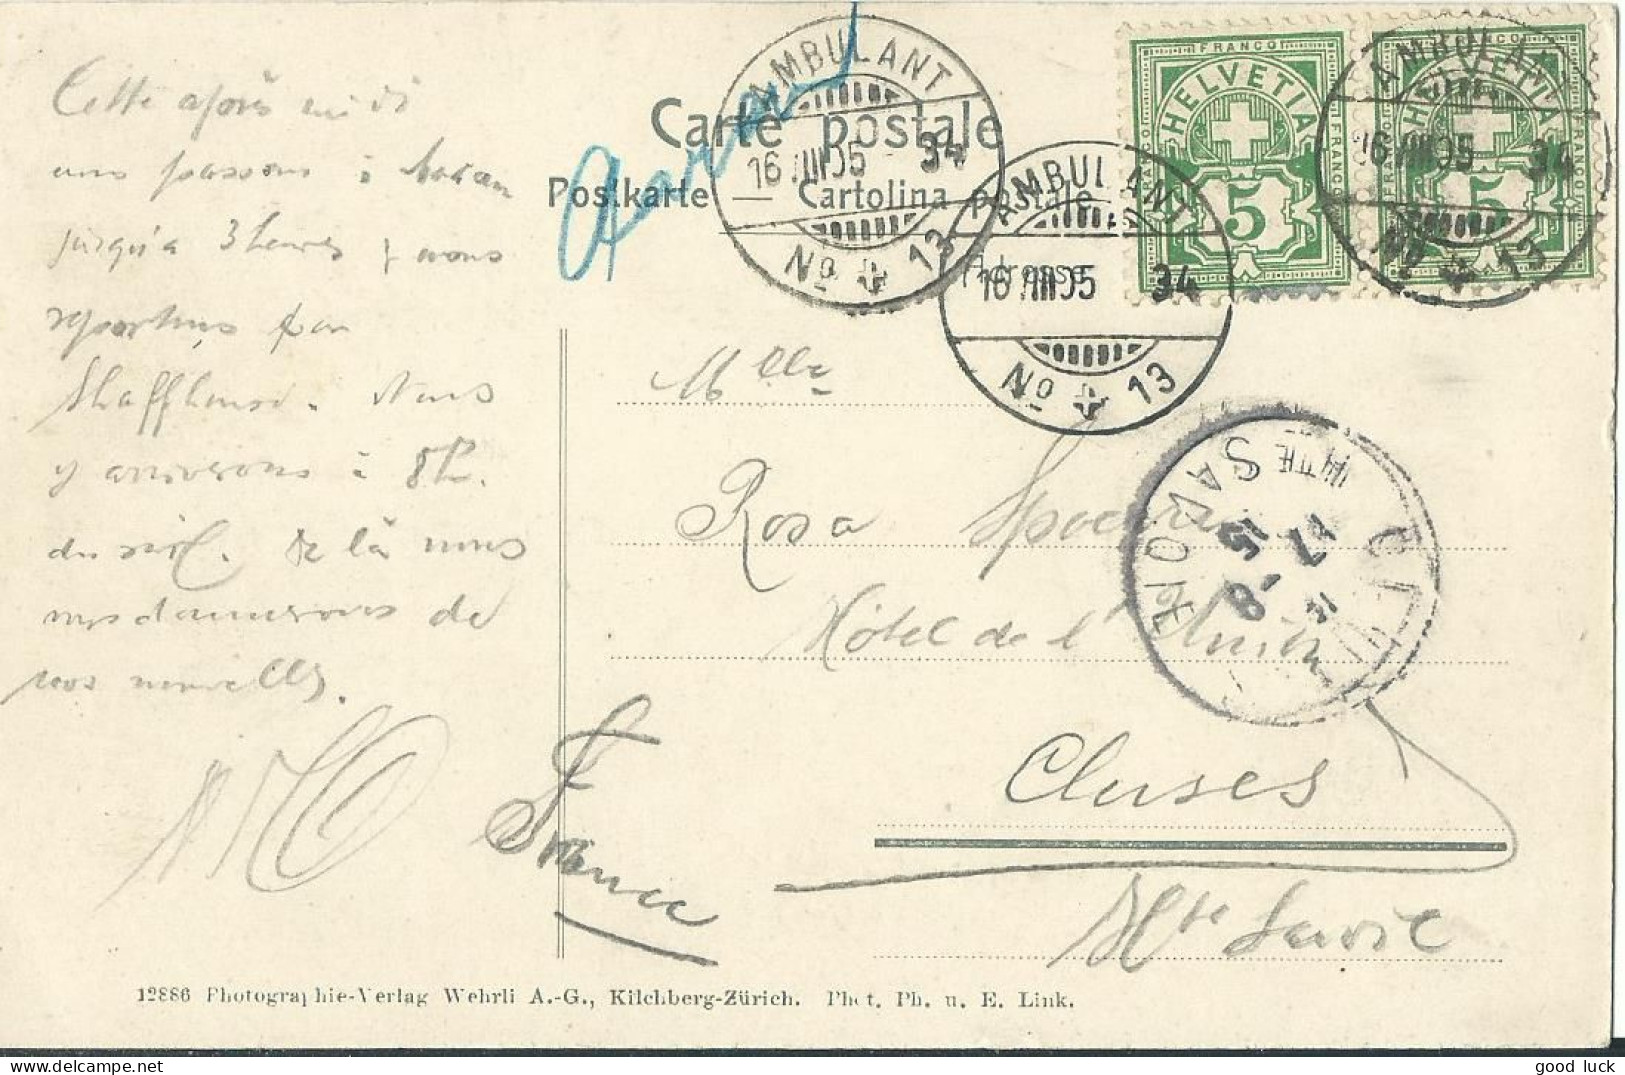 Carte postale
Postkarte — Cartolina postale
Adresse
AMBULANT
16 VIII 05 34
No 13
AMBULANT
16 VIII 05 34
No 13
AMBULANT
16 VIII 05 34
No 13
FRANCO
HELVETIA
5
FRANCO
HELVETIA
5
CLUSES
HTE SAVOIE
17
8
05
Cette après midi
nous passons à
jusqu'à 3 heures y avons
par
Shaffhouse. Nous
y arriverons à 8h.
du soir. De là nous
vous donnerons de
nos nouvelles.
Mlle
Rosa
Hôtel de l'Union
Cluses
Hte Savoie
France
12886 Photographie-Verlag Wehrli A.-G., Kilchberg-Zürich. Phot. Ph. u. E. Link.
good luck